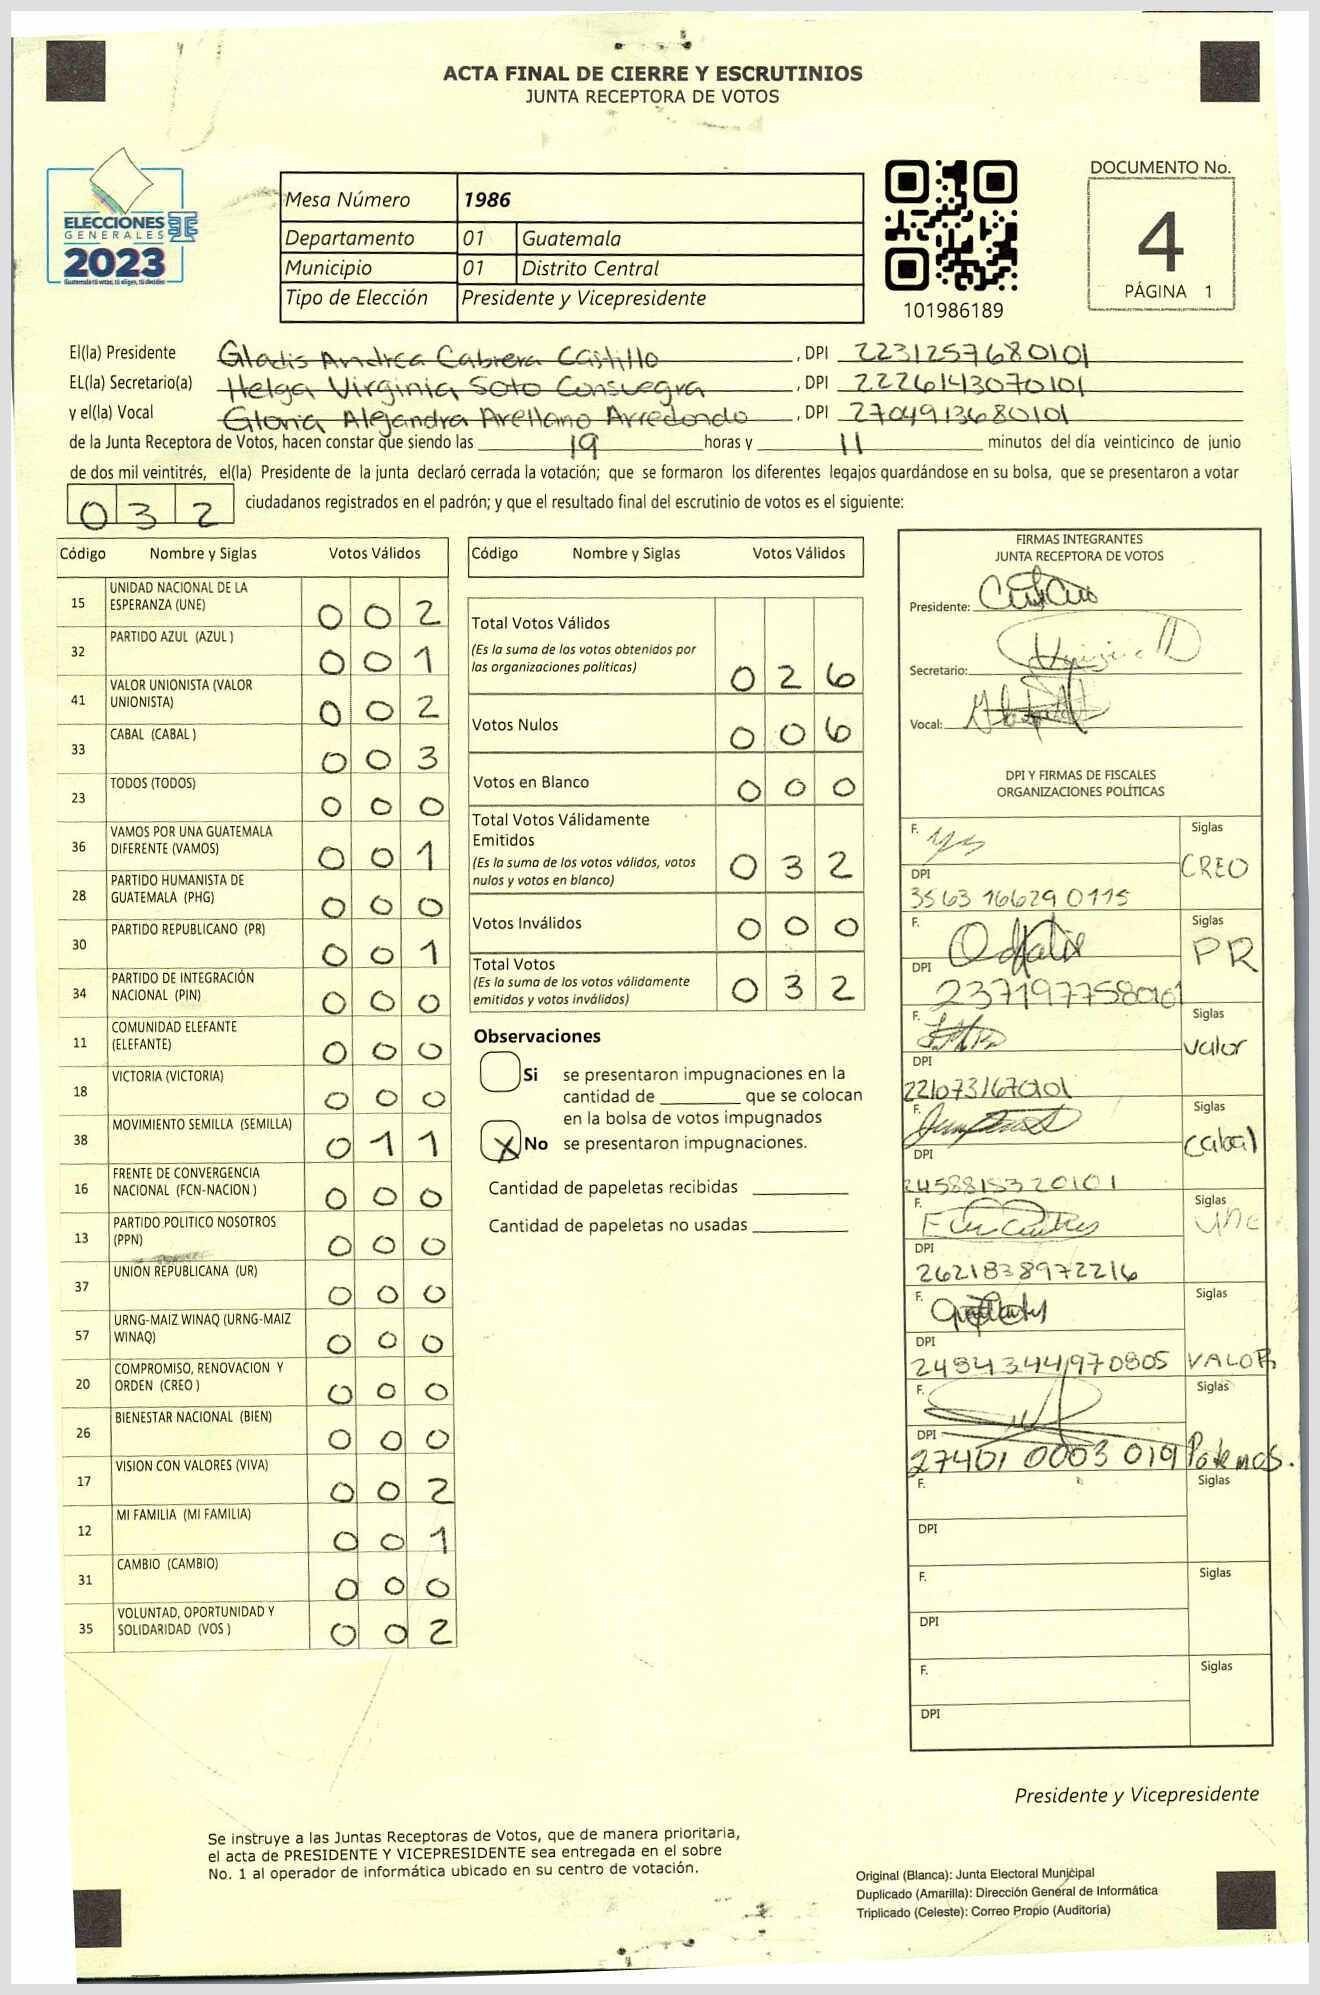 ACTA FINAL DE CIERRE Y ESCRUTINIOS
JUNTA RECEPTORA DE VOTOS
ELECCIONES
GENERALES
2023
Guatemala tú votas, tú eliges, tú decides
Mesa Número 1986
Departamento 01 Guatemala
Municipio 01 Distrito Central
Tipo de Elección Presidente y Vicepresidente
101986189
DOCUMENTO No.
4
PÁGINA 1
El(la) Presidente Gladis Andrea Cabrera Castillo, DPI 2231257680101
EL(la) Secretario(a) Helga Virginia Soto Consuegra, DPI 2226143070101
y el(la) Vocal Gloria Alejandra Arellano Arredondo, DPI 2704913680101
de la Junta Receptora de Votos, hacen constar que siendo las 19 horas y 11 minutos del día veinticinco de junio
de dos mil veintitrés, el(la) Presidente de la junta declaró cerrada la votación; que se formaron los diferentes legajos guardándose en su bolsa, que se presentaron a votar
032 ciudadanos registrados en el padrón; y que el resultado final del escrutinio de votos es el siguiente:
Código Nombre y Siglas Votos Válidos
15 UNIDAD NACIONAL DE LA ESPERANZA (UNE) 0 0 2
32 PARTIDO AZUL (AZUL ) 0 0 1
41 VALOR UNIONISTA (VALOR UNIONISTA) 0 0 2
33 CABAL (CABAL ) 0 0 3
23 TODOS (TODOS) 0 0 0
36 VAMOS POR UNA GUATEMALA DIFERENTE (VAMOS) 0 0 1
28 PARTIDO HUMANISTA DE GUATEMALA (PHG) 0 0 0
30 PARTIDO REPUBLICANO (PR) 0 0 1
34 PARTIDO DE INTEGRACIÓN NACIONAL (PIN) 0 0 0
11 COMUNIDAD ELEFANTE (ELEFANTE) 0 0 0
18 VICTORIA (VICTORIA) 0 0 0
38 MOVIMIENTO SEMILLA (SEMILLA) 0 1 1
16 FRENTE DE CONVERGENCIA NACIONAL (FCN-NACION ) 0 0 0
13 PARTIDO POLITICO NOSOTROS (PPN) 0 0 0
37 UNION REPUBLICANA (UR) 0 0 0
57 URNG-MAIZ WINAQ (URNG-MAIZ WINAQ) 0 0 0
20 COMPROMISO, RENOVACION Y ORDEN (CREO ) 0 0 0
26 BIENESTAR NACIONAL (BIEN) 0 0 0
17 VISION CON VALORES (VIVA) 0 0 2
12 MI FAMILIA (MI FAMILIA) 0 0 1
31 CAMBIO (CAMBIO) 0 0 0
35 VOLUNTAD, OPORTUNIDAD Y SOLIDARIDAD (VOS ) 0 0 2
Código Nombre y Siglas Votos Válidos
Total Votos Válidos
(Es la suma de los votos obtenidos por
las organizaciones políticas) 0 2 6
Votos Nulos 0 0 6
Votos en Blanco 0 0 0
Total Votos Válidamente
Emitidos
(Es la suma de los votos válidos, votos
nulos y votos en blanco) 0 3 2
Votos Inválidos 0 0 0
Total Votos
(Es la suma de los votos válidamente
emitidos y votos inválidos) 0 3 2
Observaciones
Si se presentaron impugnaciones en la
cantidad de ________ que se colocan
en la bolsa de votos impugnados
X No se presentaron impugnaciones.
Cantidad de papeletas recibidas
Cantidad de papeletas no usadas
FIRMAS INTEGRANTES
JUNTA RECEPTORA DE VOTOS
Presidente:
Secretario:
Vocal:
DPI Y FIRMAS DE FISCALES
ORGANIZACIONES POLÍTICAS
F. Siglas
CREO
DPI
3563 16629 0115
F. Siglas
PR
DPI
2371977580101
F. Siglas
valor
DPI
2210731670101
F. Siglas
cabal
DPI
2458815320101
F. Siglas
une
DPI
2621838972216
F. Siglas
DPI
2484344970805 VALOR
F. Siglas
DPI
27401 0003 019 Podemos.
F. Siglas
DPI
F. Siglas
DPI
F. Siglas
DPI
Presidente y Vicepresidente
Se instruye a las Juntas Receptoras de Votos, que de manera prioritaria,
el acta de PRESIDENTE Y VICEPRESIDENTE sea entregada en el sobre
No. 1 al operador de informática ubicado en su centro de votación.
Original (Blanca): Junta Electoral Municipal
Duplicado (Amarilla): Dirección General de Informática
Triplicado (Celeste): Correo Propio (Auditoría)